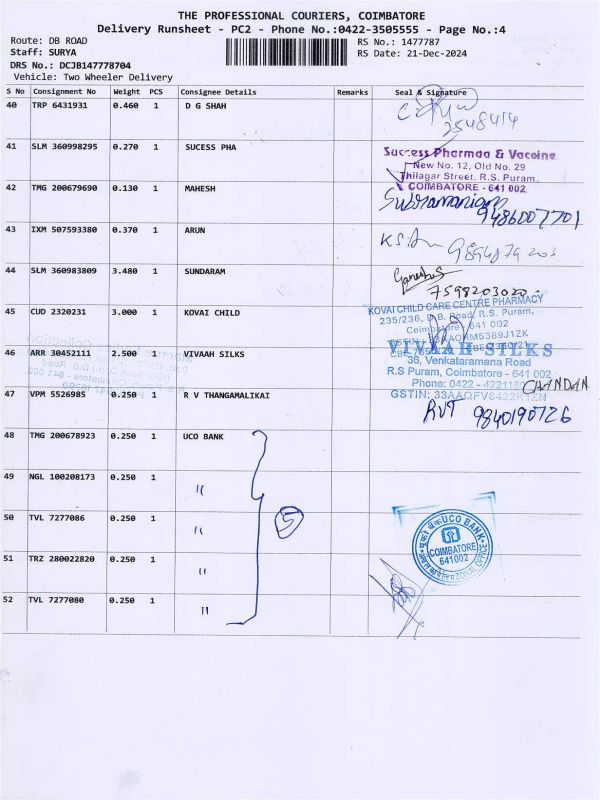 THE PROFESSIONAL COURIERS, COIMBATORE
Delivery Runsheet - PC2 - Phone No.:0422-3505555 - Page No.:4
Route: DB ROAD
RS No.: 1477787
Staff: SURYA
RS Date: 21-Dec-2024
DRS No.: DCJB147778704
Vehicle: Two Wheeler Delivery
S No Consignment No Weight PCS Consignee Details Remarks Seal & Signature
40 TRP 6431931 0.460 1 D G SHAH
2548414
41 SLM 360998295 0.270 1 SUCESS PHA
Success Pharmaa & Vaccine
New No. 12, Old No. 29
Thilagar Street, R.S. Puram,
COIMBATORE - 641 002
42 TMG 200679690 0.130 1 MAHESH
Subramaniam
9486007701
43 IXM 507593380 0.370 1 ARUN
44 SLM 360983809 3.480 1 SUNDARAM
Ganesh S
7598203020
45 CUD 2320231 3.000 1 KOVAI CHILD
KOVAI CHILD CARE CENTRE PHARMACY
235/236, D.B. Road, R.S. Puram,
Coimbatore - 641 002
46 ARR 30452111 2.500 1 VIVAAH SILKS
VIVAAH SILKS
36, Venkataramana Road
R.S Puram, Coimbatore - 641 002
Phone: 0422 -
CHANDAN
47 VPM 5526985 0.250 1 R V THANGAMALIKAI
RVT 9840190726
48 TMG 200678923 0.250 1 UCO BANK
49 NGL 100208173 0.250 1 "
50 TVL 7277086 0.250 1 "
5
51 TRZ 280022820 0.250 1 "
52 TVL 7277080 0.250 1 "
यूको बैंक UCO BANK
COIMBATORE
641002
ZONAL OFFICE